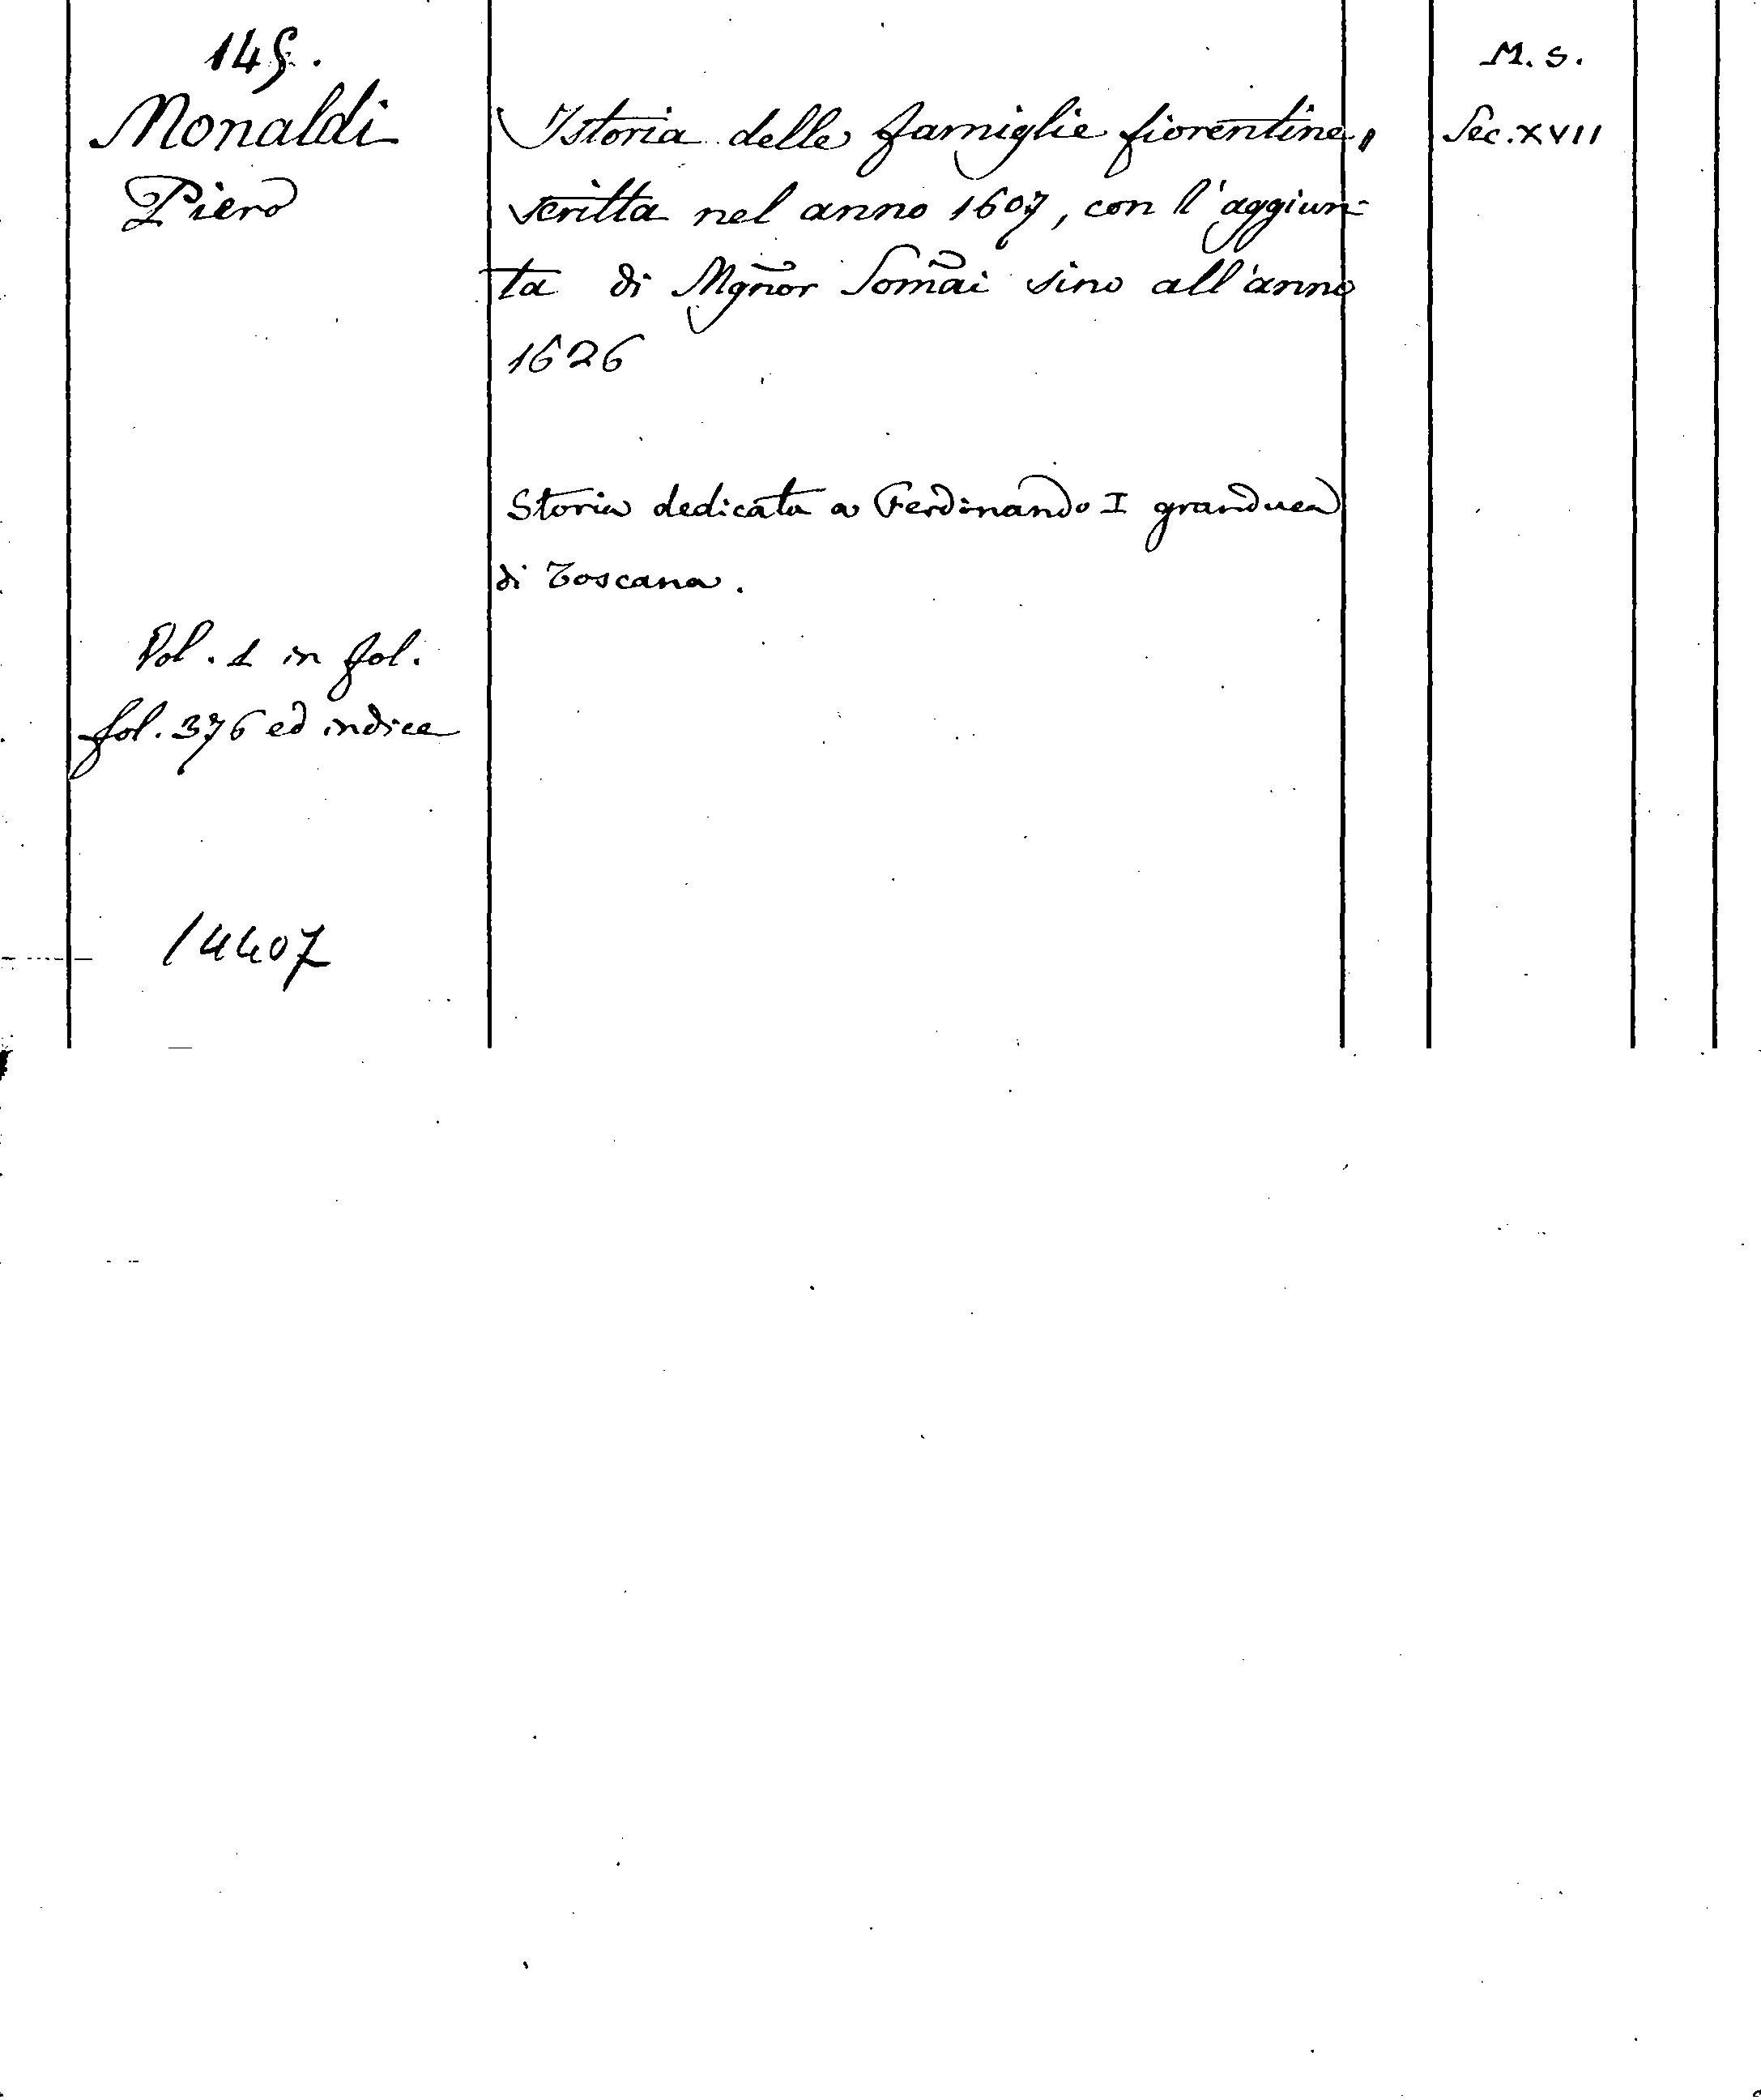 145.
Monaldi
Piero
Istoria delle famiglie fiorentine,
scritta nel anno 1607, con l'aggiun-
ta di Mgñor Som̃ai sino all'anno
1626
Storia dedicata a Ferdinando I granduca
di Toscana.
Vol. 1 in fol.
fol. 376 ed indice
14407
M. S.
Sec. XVII